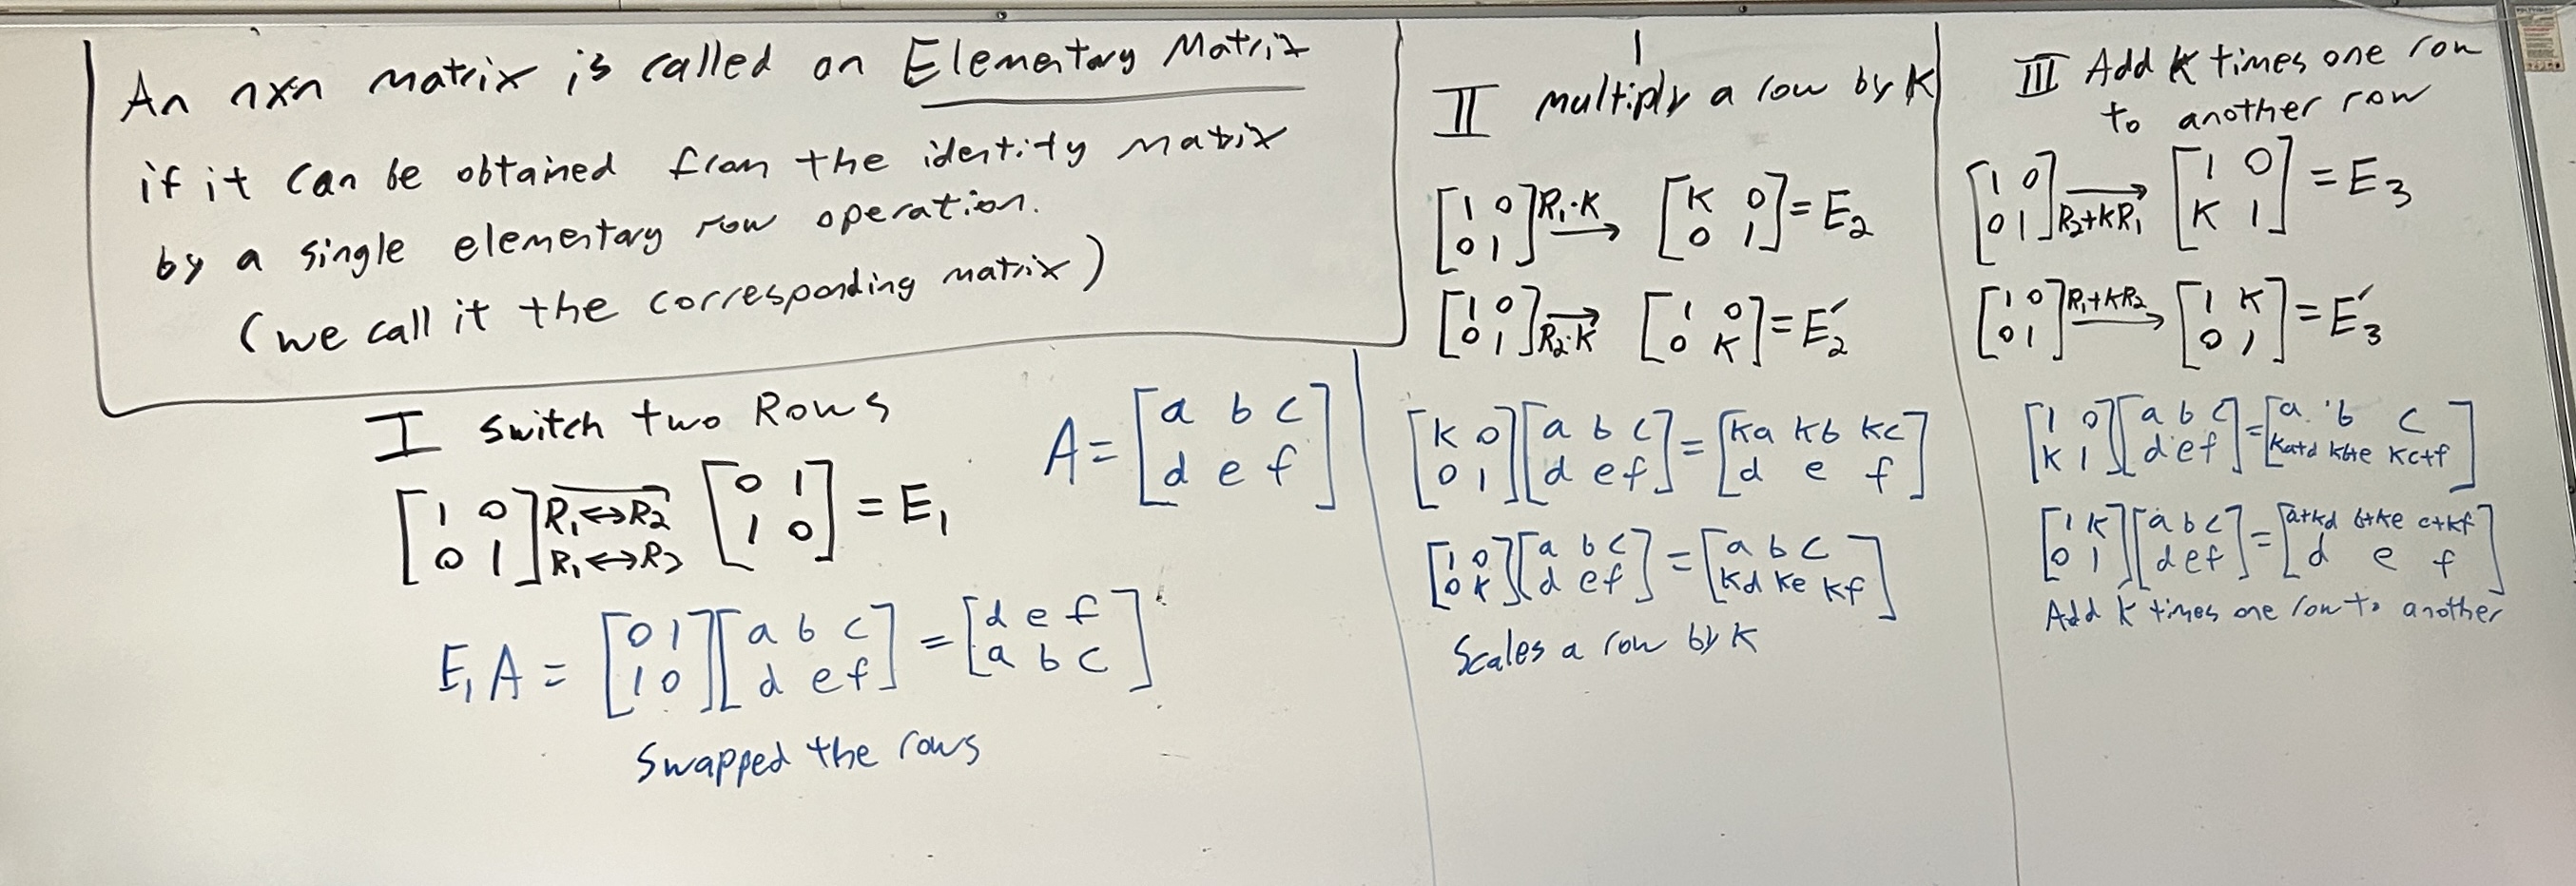 An nxn matrix is called an Elementary Matrix
if it can be obtained from the identity matrix
by a single elementary row operation.
(we call it the corresponding matrix)
I switch two Rows
[1 0; 0 1] R₁↔R₂ R₁↔R₂ → [0 1; 1 0] = E₁
A = [a b c; d e f]
E₁A = [0 1; 1 0][a b c; d e f] = [d e f; a b c]
Swapped the rows
II multiply a row by K
[1 0; 0 1] R₁·K → [K 0; 0 1] = E₂
[1 0; 0 1] → R₂·K [1 0; 0 K] = E₂′
[K 0; 0 1][a b c; d e f] = [Ka Kb Kc; d e f]
[1 0; 0 K][a b c; d e f] = [a b c; Kd Ke Kf]
Scales a row by K
III Add K times one row
to another row
[1 0; 0 1] → R₂+KR₁ [1 0; K 1] = E₃
[1 0; 0 1] R₁+KR₂ → [1 K; 0 1] = E₃′
[1 0; K 1][a b c; d e f] = [a b c; Ka+d Kb+e Kc+f]
[1 K; 0 1][a b c; d e f] = [a+Kd b+Ke c+Kf; d e f]
Add K times one row to another